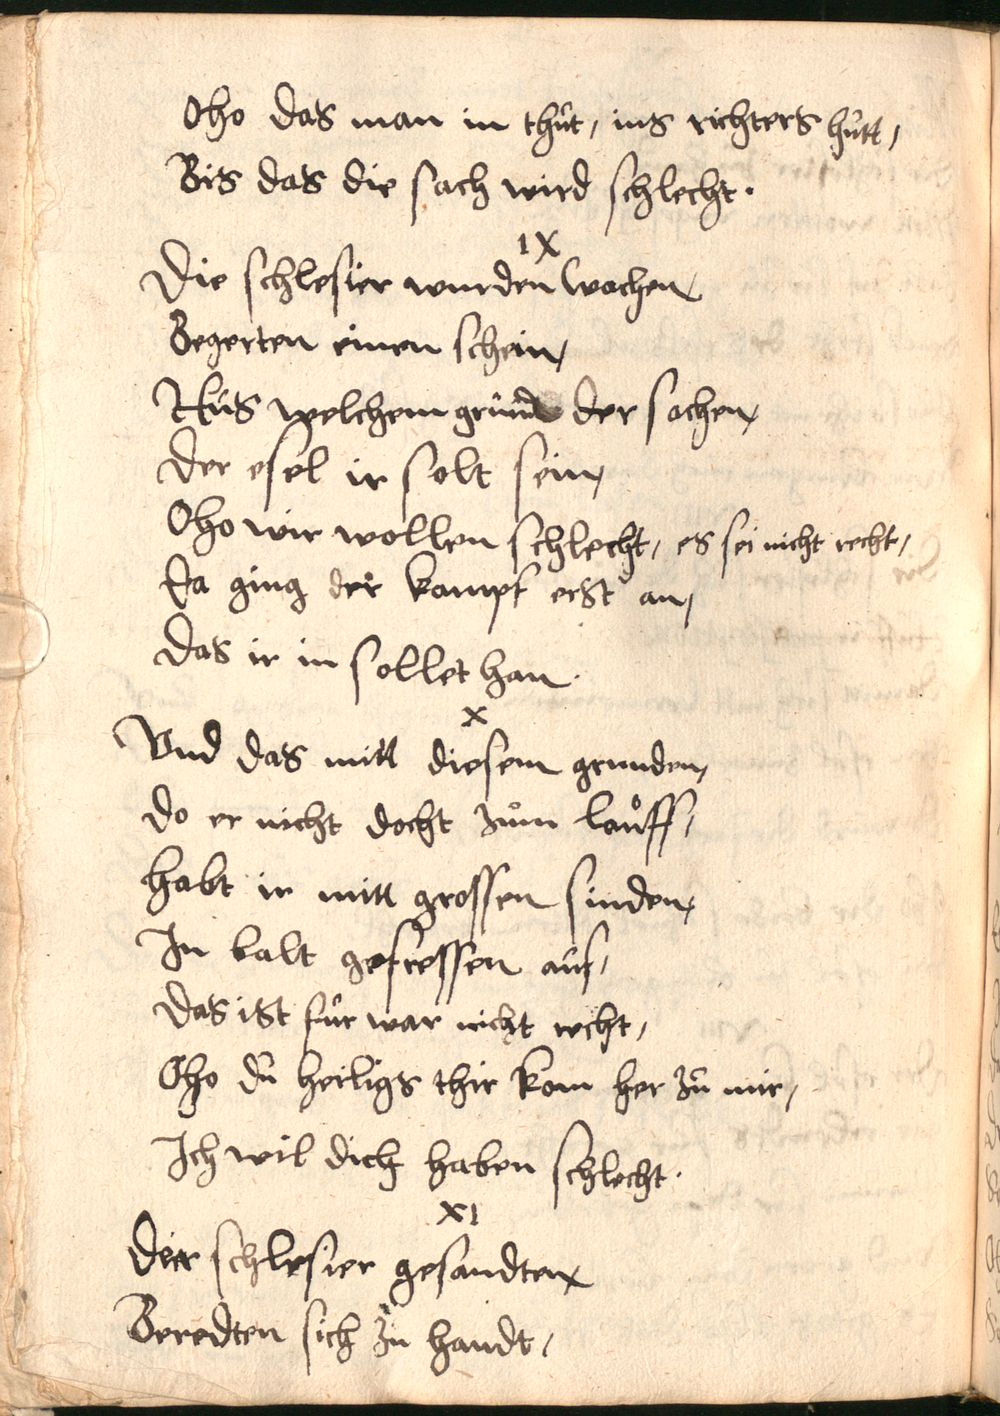 Oho das man in thut, ins richters hutt,
Bis das die sach wird schlecht.
IX
Die schlesier wurden wachen,
Begerten einen schein,
Aus welchem grund der sachen,
Der esel ir solt sein,
Oho wir wollen schlecht, es sei nicht recht,
Da ging der kampf erst an,
Das ir in sollet han.
X
Vnd das mitt diesem grunden,
Do er nicht docht zum lauff,
habt ir mitt grossen sinden,
In balt gefressen auf,
Das ist fur war nicht recht,
Oho du heiligs thir kom her zu mir,
Ich wil dich haben schlecht.
XI
Der schlesier gesandten
Beredten sich zu handt,